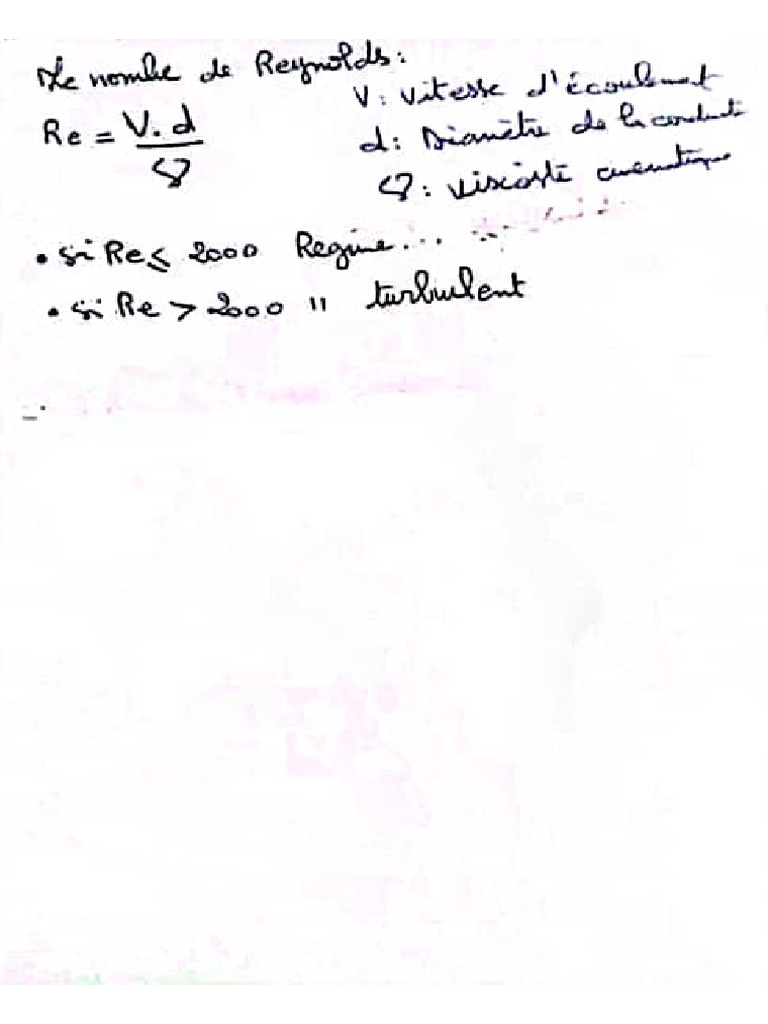 Le nombre de Reynolds:
V: Vitesse d'écoulement
Re = V.d / ʋ
d: Diamètre de la conduite
ʋ: Viscosité cinematique
• si Re ≤ 2000 Regime...
• si Re > 2000 " turbulent